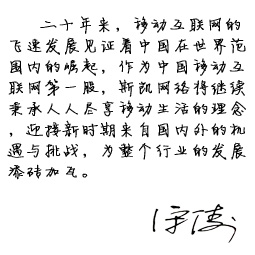 二十年来，移动互联网的
飞速发展见证着中国在世界范
围内的崛起，作为中国移动互
联网第一股，斯凯网络将继续
秉承人人尽享移动生活的理念
，迎接新时期来自国内外的机
遇与挑战，为整个行业的发展
添砖加瓦。